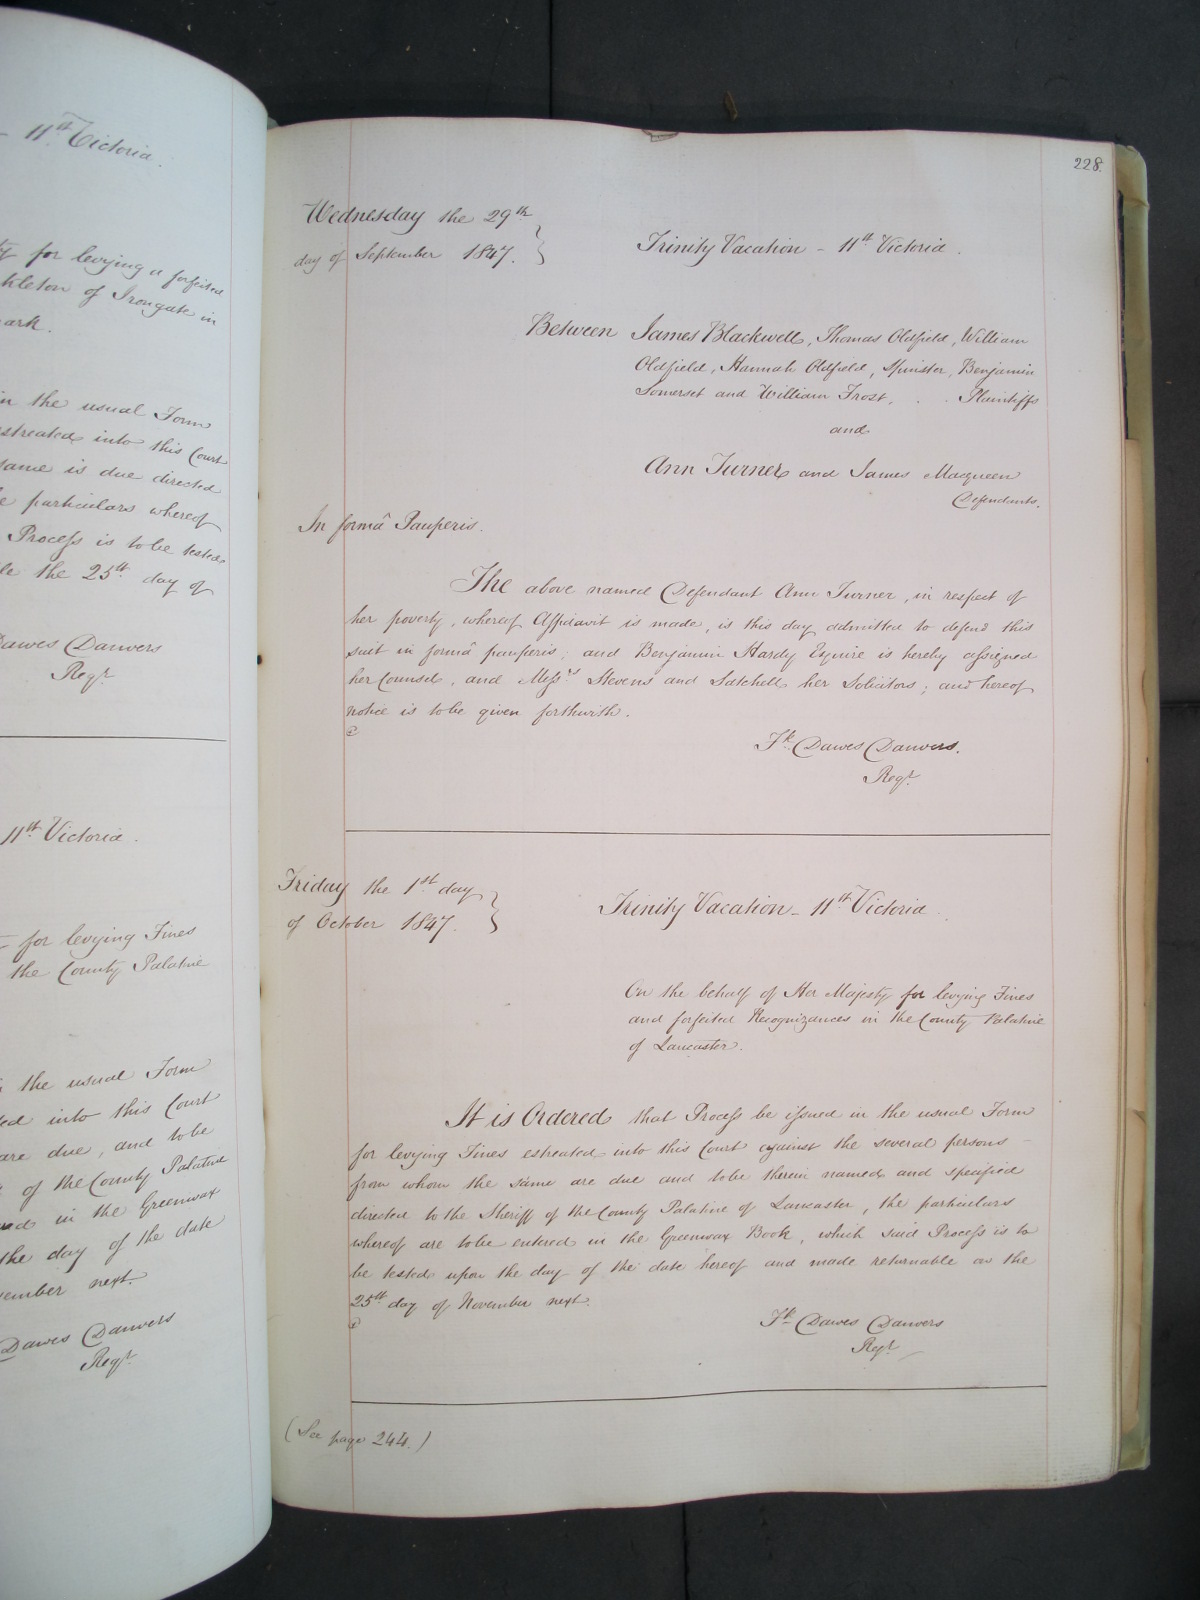 11th Victoria.
for levying a forfeited
of Irongate in
ark.
in the usual Form
estreated into this Court
same is due directed
particulars whereof
Process is to be tested
the 25th day of
Dawes Danvers
Regr
11th Victoria.
for levying Fines
the County Palatine
the usual Form
into this Court
are due, and to be
of the County Palatine
in the Greenwax
the day of the date
next.
Dawes Danvers
Regr
228.
Wednesday the 29th
day of September 1847.
Trinity Vacation - 11th Victoria.
Between James Blackwell, Thomas Oldfield, William
Oldfield, Hannah Oldfield, Spinster, Benjamin
Somerset and William Frost, . . Plaintiffs
and
Ann Turner and James Macqueen
Defendants.
In formâ Pauperis.
The above named Defendant Ann Turner, in respect of
her poverty, whereof Affidavit is made, is this day admitted to defend this
suit in formâ pauperis; and Benjamin Hardy Esquire is hereby assigned
her Counsel, and Messrs Stevens and Satchell her Solicitors; and hereof
notice is to be given forthwith.
Fk Dawes Danvers.
Regr
Friday the 1st day
of October 1847.
Trinity Vacation - 11th Victoria.
On the behalf of Her Majesty for levying Fines
and forfeited Recognizances in the County Palatine
of Lancaster.
It is Ordered that Process be issued in the usual Form
for levying Fines estreated into this Court against the several persons
from whom the same are due and to be therein named and specified
directed to the Sheriff of the County Palatine of Lancaster, the particulars
whereof are to be entered in the Greenwax Book, which said Process is to
be tested upon the day of the date hereof and made returnable on the
25th day of November next.
Fk Dawes Danvers
Regr
(See page 244.)